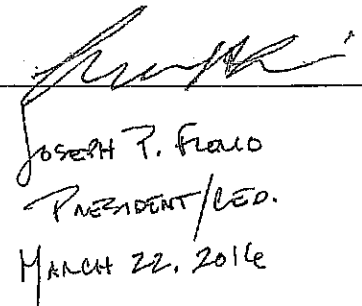 JOSEPH P.
PRESIDENT/CEO.
MARCH 22, 2016